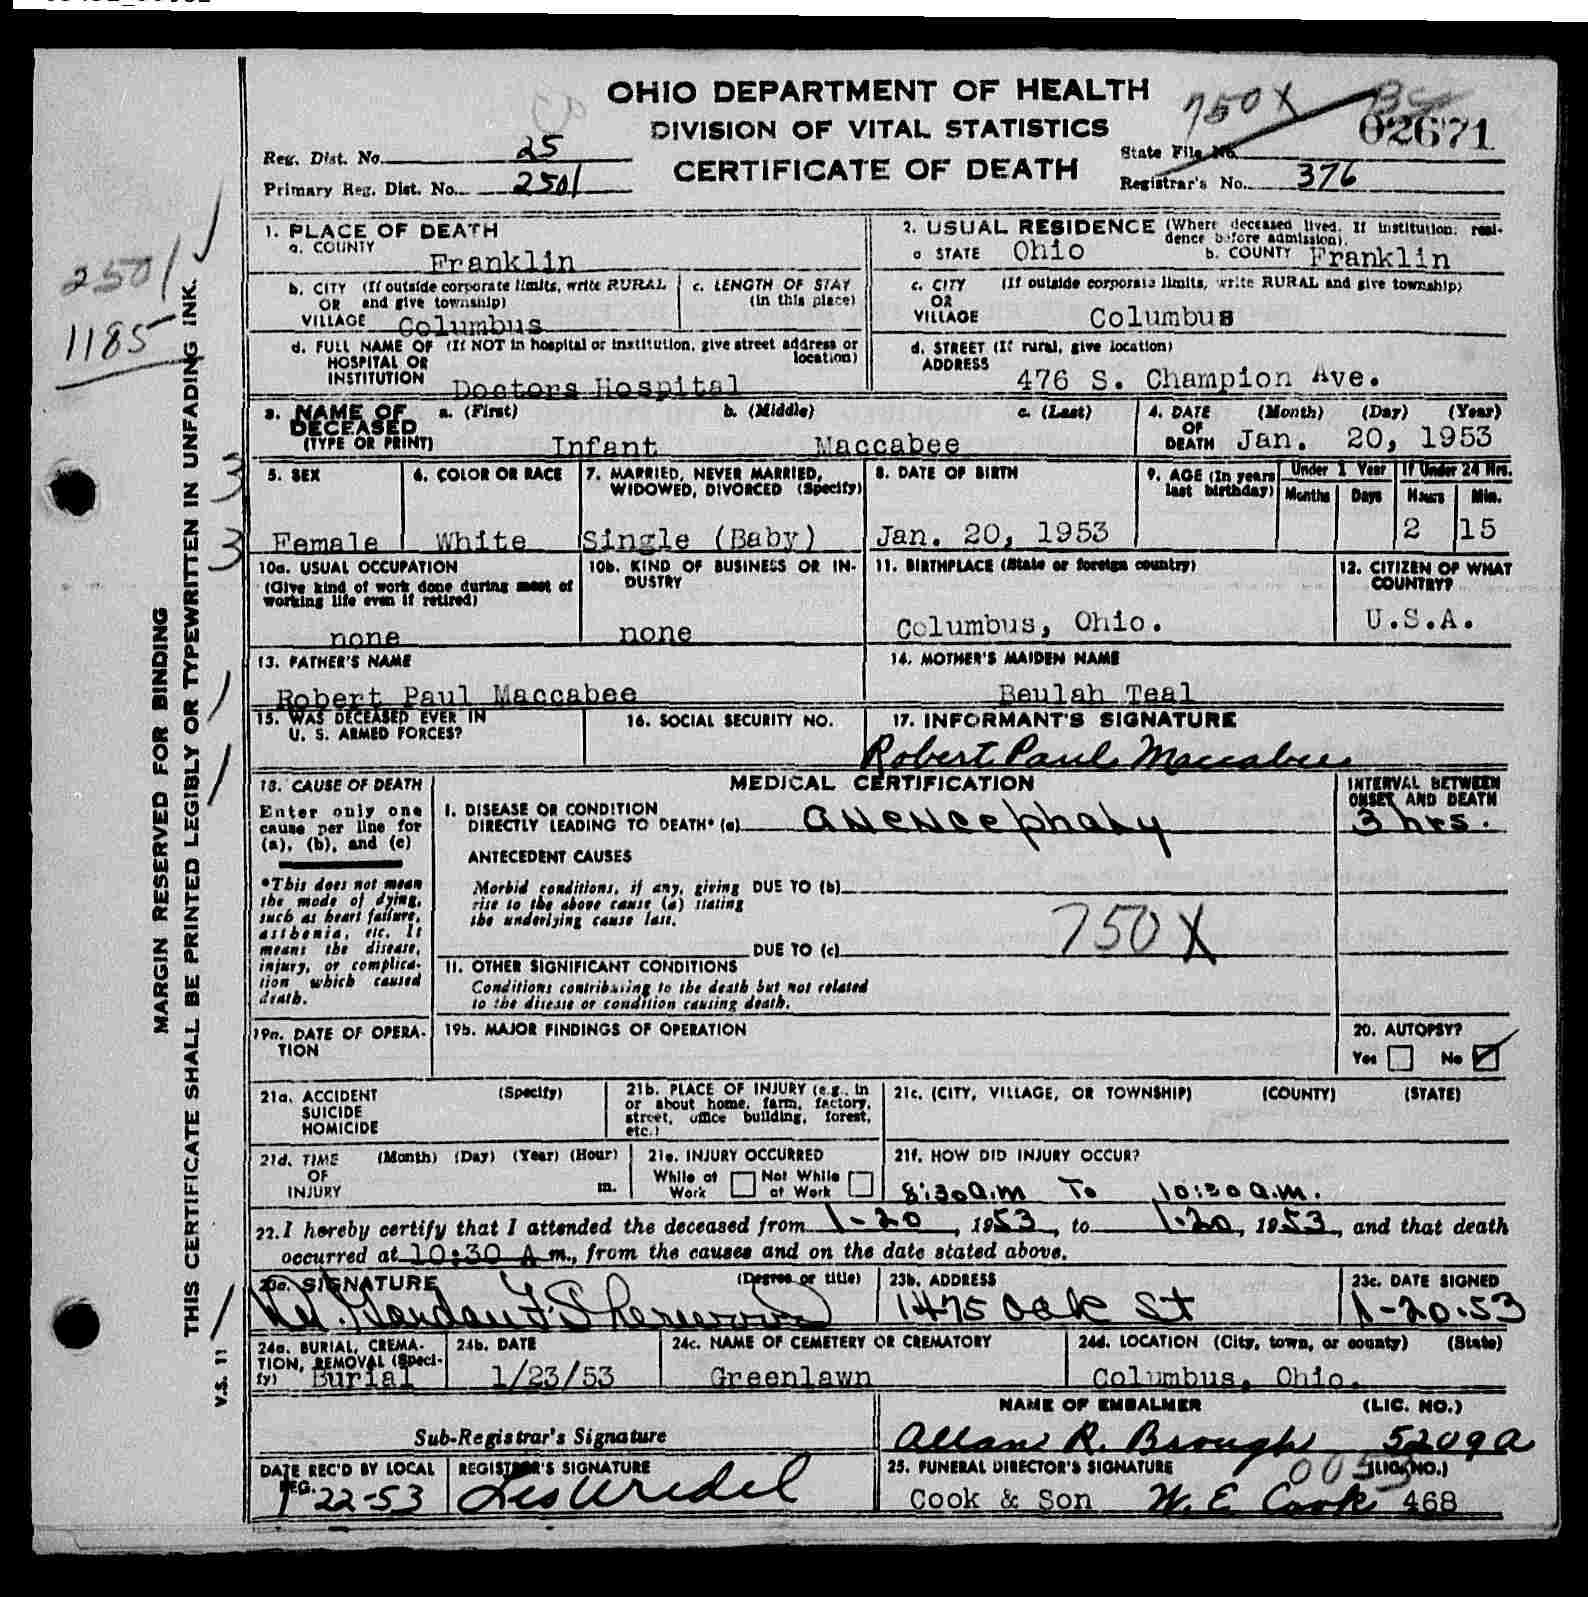 OHIO DEPARTMENT OF HEALTH
DIVISION OF VITAL STATISTICS
CERTIFICATE OF DEATH
750X
02671
Reg. Dist. No. 25
Primary Reg. Dist. No. 2501
State File No.
Registrar's No. 376
2501
1185
MARGIN RESERVED FOR BINDING
THIS CERTIFICATE SHALL BE PRINTED LEGIBLY OR TYPEWRITTEN IN UNFADING INK.
V.S. 11
3
3
1. PLACE OF DEATH
a. COUNTY
Franklin
b. CITY (If outside corporate limits, write RURAL
OR and give township)
VILLAGE Columbus
c. LENGTH OF STAY
(in this place)
d. FULL NAME OF (If NOT in hospital or institution, give street address or
HOSPITAL OR location)
INSTITUTION Doctors Hospital
2. USUAL RESIDENCE (Where deceased lived. If institution: resi-
dence before admission).
a STATE Ohio b. COUNTY Franklin
c. CITY (If outside corporate limits, write RURAL and give township)
OR
VILLAGE Columbus
d. STREET (If rural, give location)
ADDRESS
476 S. Champion Ave.
3. NAME OF a. (First) b. (Middle) c. (Last)
DECEASED
(TYPE OR PRINT) Infant Maccabee
4. DATE (Month) (Day) (Year)
OF
DEATH Jan. 20, 1953
5. SEX
Female
6. COLOR OR RACE
White
7. MARRIED, NEVER MARRIED,
WIDOWED, DIVORCED (Specify)
Single (Baby)
8. DATE OF BIRTH
Jan. 20, 1953
9. AGE (In years
last birthday)
Under 1 Year
Months Days
If Under 24 Hrs.
Hours Min.
2 15
10a. USUAL OCCUPATION
(Give kind of work done during most of
working life even if retired)
none
10b. KIND OF BUSINESS OR IN-
DUSTRY
none
11. BIRTHPLACE (State or foreign country)
Columbus, Ohio.
12. CITIZEN OF WHAT
COUNTRY?
U.S.A.
13. FATHER'S NAME
Robert Paul Maccabee
14. MOTHER'S MAIDEN NAME
Beulah Teal
15. WAS DECEASED EVER IN
U. S. ARMED FORCES?
16. SOCIAL SECURITY NO.
17. INFORMANT'S SIGNATURE
Robert Paul Maccabee
18. CAUSE OF DEATH
Enter only one
cause per line for
(a), (b), and (c)
*This does not mean
the mode of dying,
such as heart failure,
asthenia, etc. It
means the disease,
injury, or complica-
tion which caused
death.
MEDICAL CERTIFICATION
I. DISEASE OR CONDITION
DIRECTLY LEADING TO DEATH* (a) anencephaly
ANTECEDENT CAUSES
Morbid conditions, if any, giving DUE TO (b)
rise to the above cause (a) stating
the underlying cause last.
DUE TO (c)
750X
INTERVAL BETWEEN
ONSET AND DEATH
3 hrs.
II. OTHER SIGNIFICANT CONDITIONS
Conditions contributing to the death but not related
to the disease or condition causing death.
19a. DATE OF OPERA-
TION
19b. MAJOR FINDINGS OF OPERATION
20. AUTOPSY?
Yes No
21a. ACCIDENT (Specify)
SUICIDE
HOMICIDE
21b. PLACE OF INJURY (e.g., in
or about home, farm, factory,
street, office building, forest,
etc.)
21c. (CITY, VILLAGE, OR TOWNSHIP) (COUNTY) (STATE)
21d. TIME (Month) (Day) (Year) (Hour)
OF
INJURY m.
21e. INJURY OCCURRED
While at Not While
Work at Work
21f. HOW DID INJURY OCCUR?
8:30 a.m To 10:30 a.m.
22. I hereby certify that I attended the deceased from 1-20, 1953, to 1-20, 1953, and that death
occurred at 10:30 A m., from the causes and on the date stated above.
23a. SIGNATURE (Degree or title)
Sherwood
23b. ADDRESS
1475 Oak St
23c. DATE SIGNED
1-20-53
24a. BURIAL, CREMA-
TION, REMOVAL (Speci-
fy) Burial
24b. DATE
1/23/53
24c. NAME OF CEMETERY OR CREMATORY
Greenlawn
24d. LOCATION (City, town, or county) (State)
Columbus, Ohio.
Sub-Registrar's Signature
NAME OF EMBALMER (LIC. NO.)
Allan R. Brough 5209A
DATE REC'D BY LOCAL
REG.
1-22-53
REGISTRAR'S SIGNATURE
25. FUNERAL DIRECTOR'S SIGNATURE (LIC. NO.)
Cook & Son W. E. Cook 468